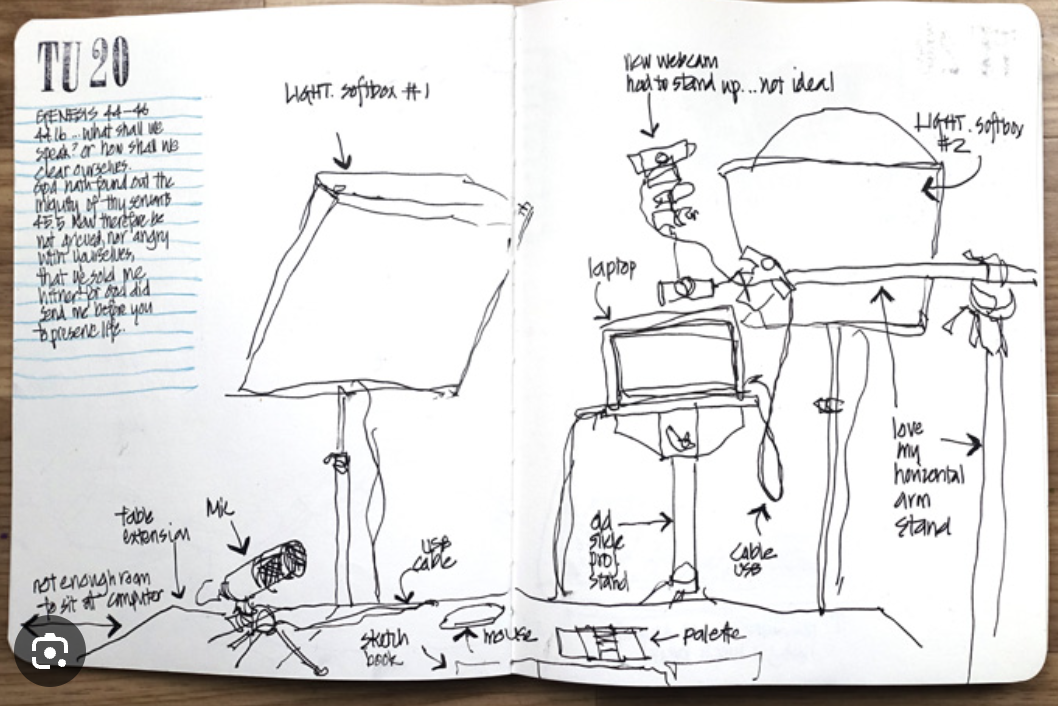 TU 20
GENESIS 44-46
44.16 ... what shall we
speak? or how shall we
clear ourselves.
God hath found out the
iniquity of thy servants
45.5 Now therefore be
not grieved, nor angry
with yourselves,
that ye sold me
hither: for God did
send me before you
to preserve life.
LIGHT. softbox #1
new webcam
had to stand up...not ideal
LIGHT. softbox
#2
laptop
love
my
horizontal
arm
stand
old
slide
proj.
stand
cable
USB
table
extension
Mic
USB
cable
not enough room
to sit at computer
sketch
book
mouse
palette